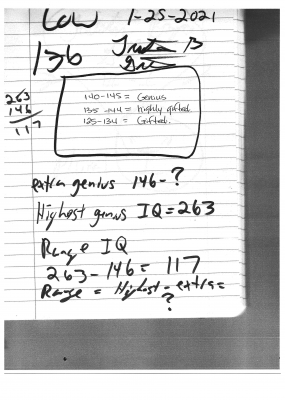 Law 1-25-2021
136
B
140-145 = Genius
135-144 = highly gifted
125-134 = Gifted.
263
146
117
extra genius 146-?
Highest genius IQ = 263
Range IQ
263-146 = 117
Range = Highest - extra =
?